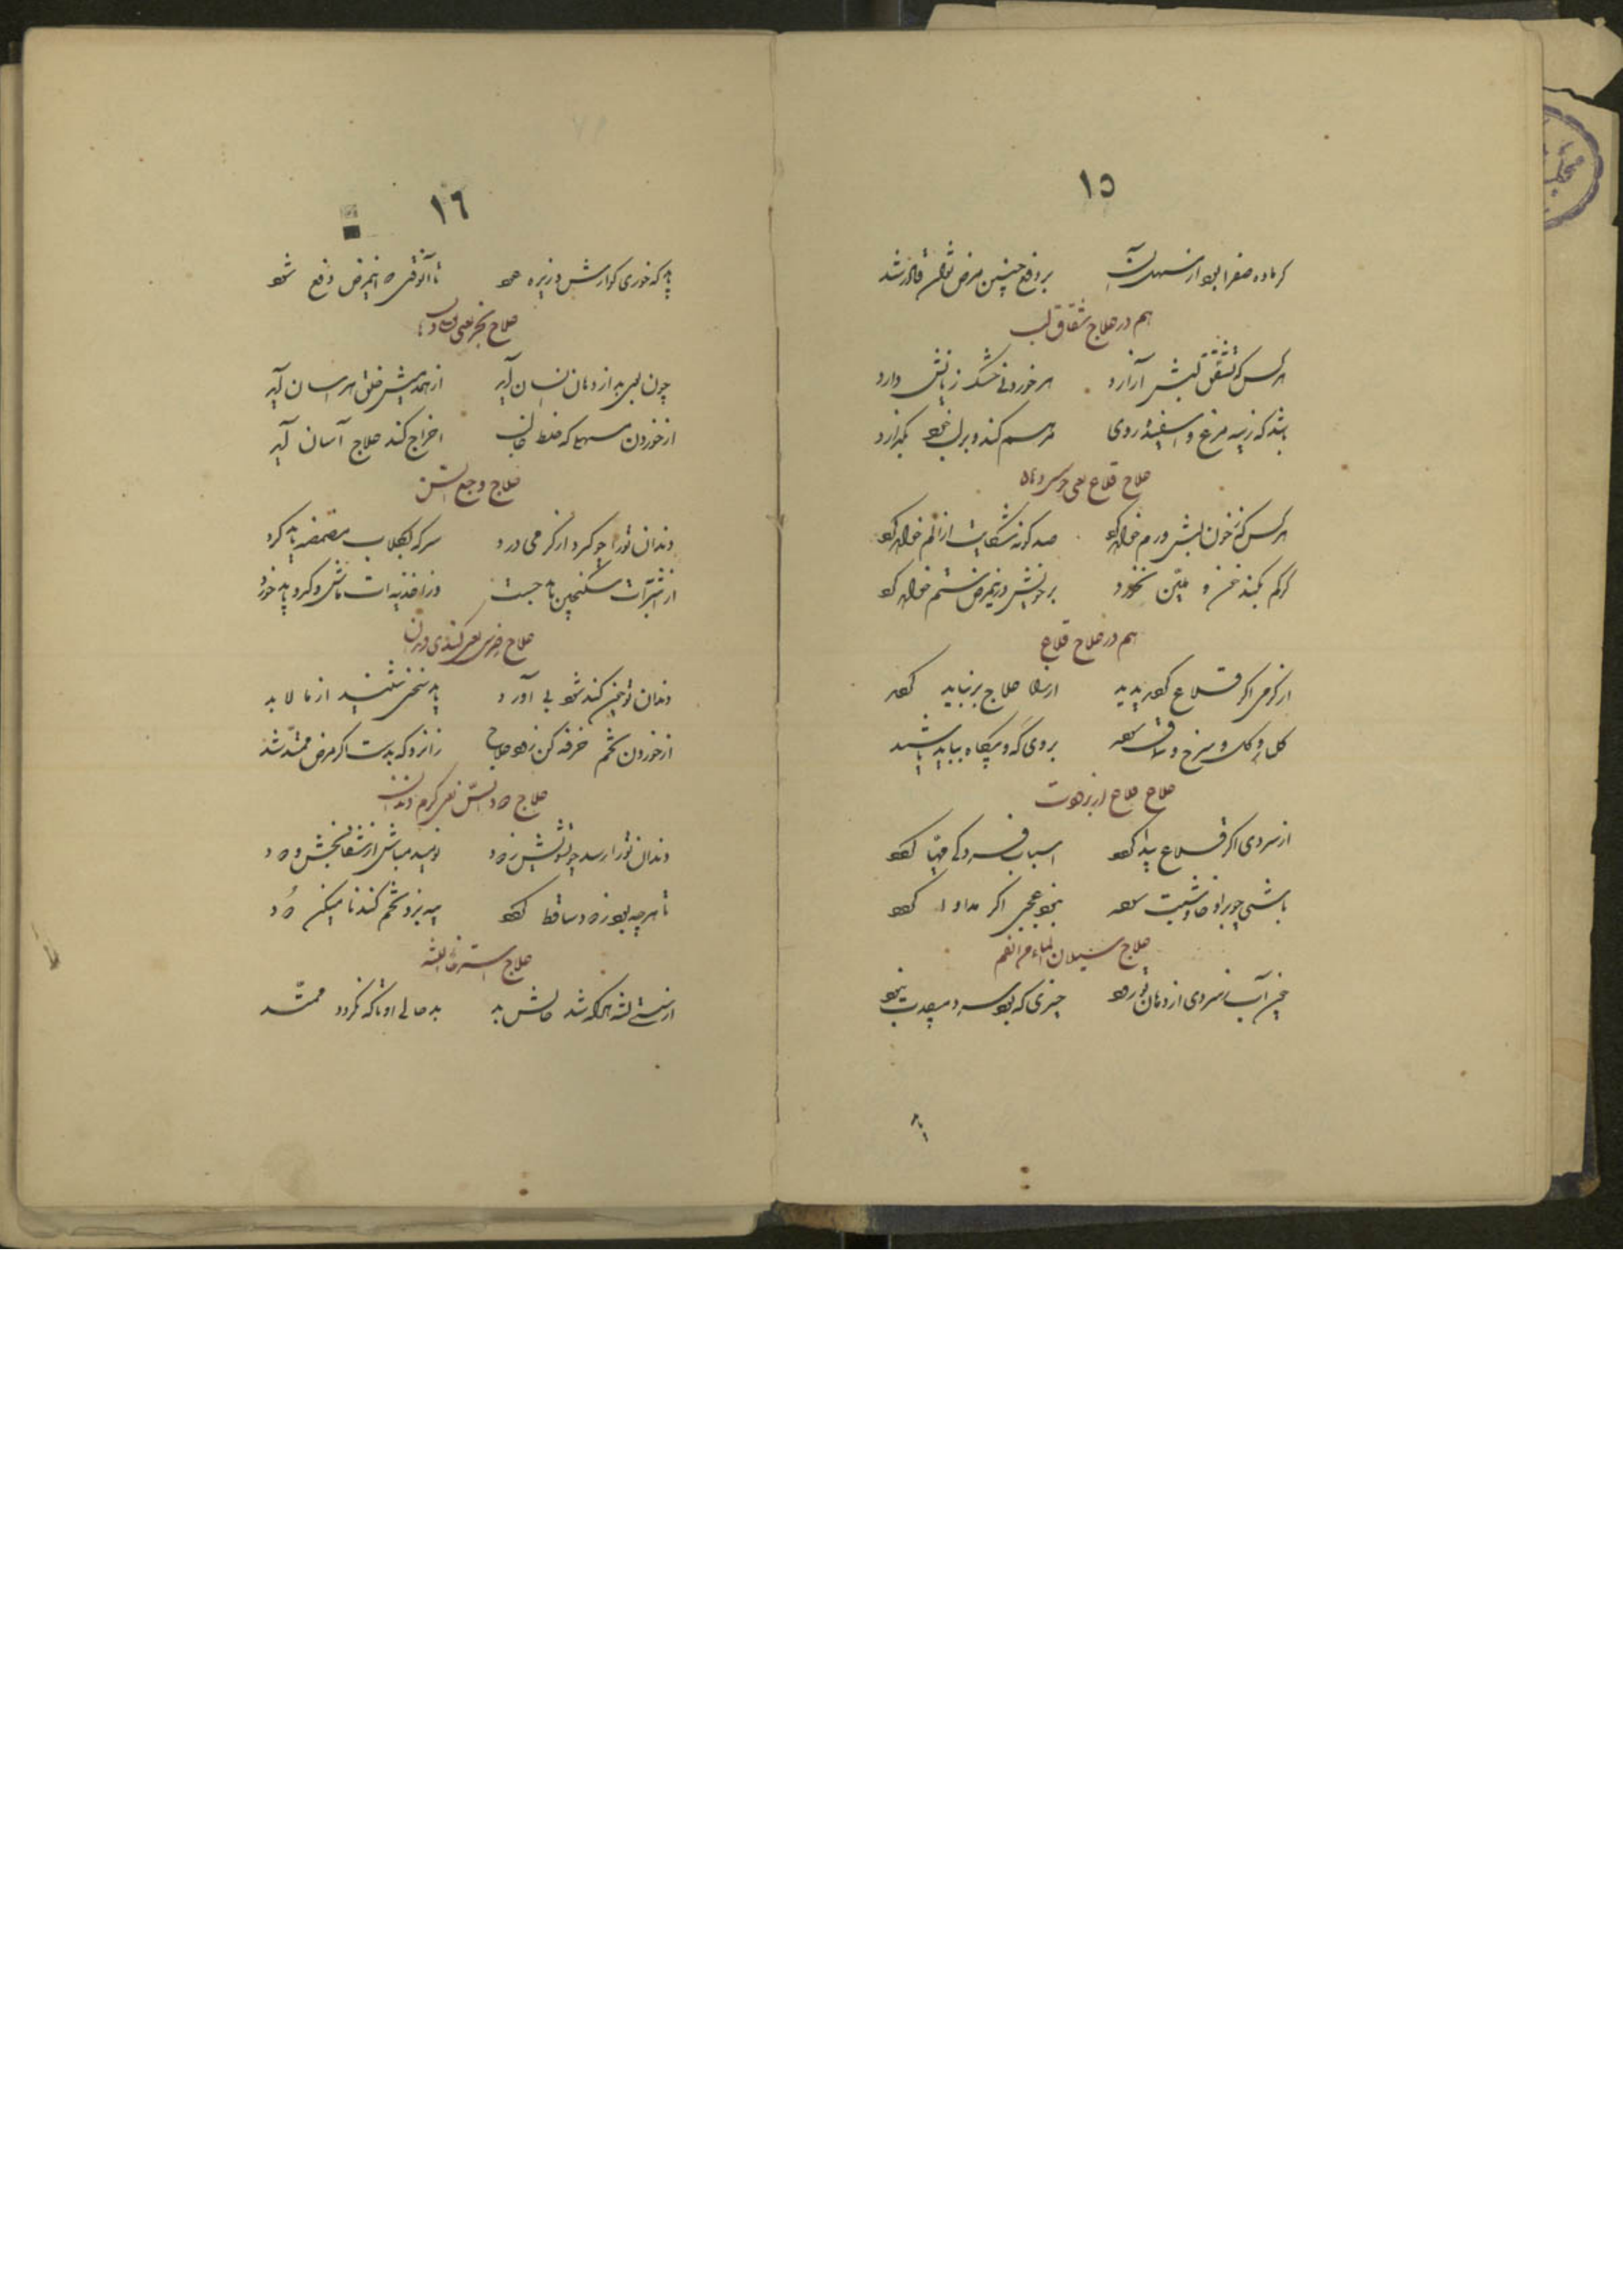 ١٥
گر ماده صفرا بود از مسهل آن
بر دفع چنین مرض توان قادر شد
هم در علاج شقاق لب
هر کس که تشقق لبش آزارد
هر خوردنی خشک زیانش دارد
باید که ز پیه مرغ و اسفیداروی
مرهم کند و بر لب خود بگذارد
علاج قلاع یعنی جوشش دهان
هر کس که ز خون لبش ورم خواهد کرد
صد گونه شکایت از الم خواهد کرد
گر کم نکند خون و ملین نخورد
بر خویش درین مرض ستم خواهد کرد
هم در علاج قلاع
از گرمی اگر قلاع گردید پدید
علاج بر نباید
گل سرخ و سماق
بروی گه و بیگاه بباید پاشید
علاج قلاع از برودت
از سردی اگر قلاع پیدا گردد
اسباب فسردگی مهیا گردد
نبود عجبی اگر مداوا گردد
علاج سیلان الماء من الفم
چون آب ز سردی از دهان تو رود
چیزی که بود سرد نبود
١٦
باید که خوری گوارش و زیره
تا آنکه این مرض دفع شود
علاج بخر یعنی
چون بوی بد از دهان انسان آید
از همدمیش خلق هراسان آید
از خوردن مسهلی که خلط غالب
اخراج کند علاج آسان آید
علاج وجع السن
دندان تو را چو گیرد از گرمی درد
سرکه بگلاب مضمضه باید کرد
از شربت سکنجبین باید جست
وز اغذیه ات ماش و کدو باید خورد
علاج ضرس یعنی کندی دندان
دندان تو چون کند شود بی آورد
باید سخنی شنید از ما لابد
از خوردن تخم خرفه کن زود علاج
زان رو که بد است اگر مرض ممتد شد
علاج دود السن یعنی کرم دندان
دندان تو را رسد چو تشویش ز دود
نومید مباش از شفابخش ودود
تا هر چه بود ز دود ساقط گردد
پیه بز و تخم گندنا میکن دود
علاج استرخاء لثه
از سستی لثه هر که شد حالش بد
بد حالی او تا که نگردد ممتد